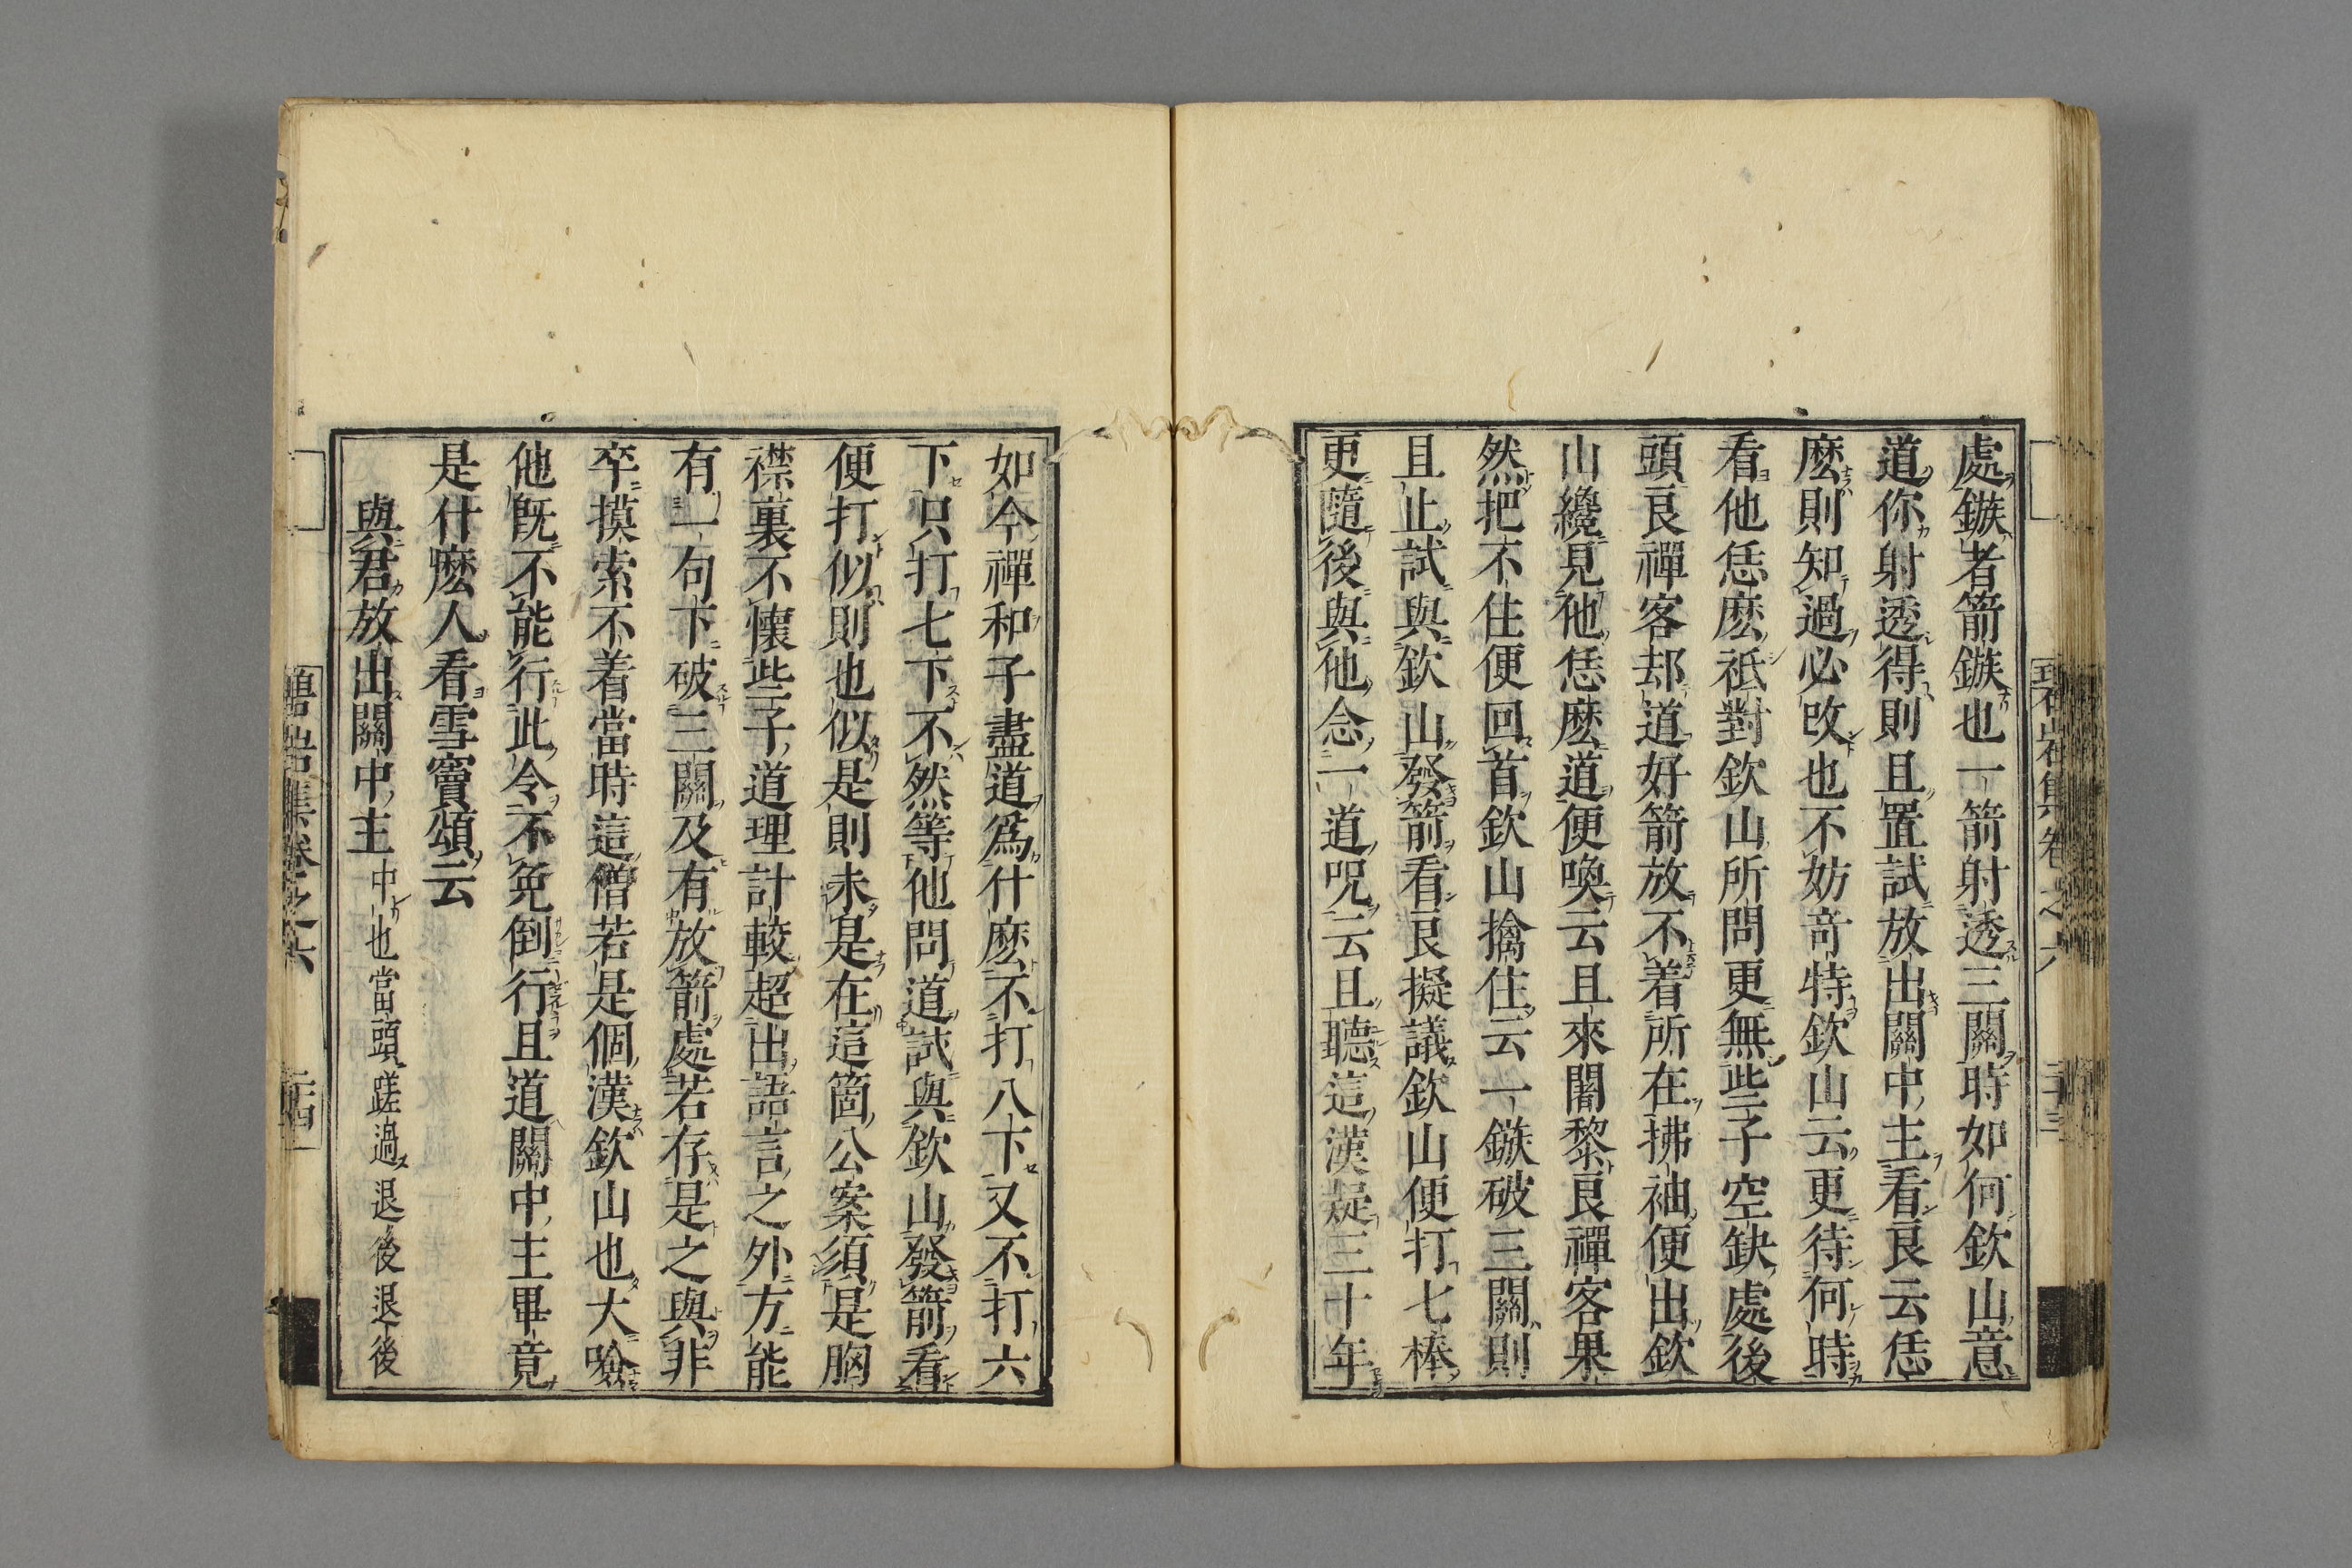 處鏃者箭鏃也一箭射透三關時如何欽山意
道你射透得則且置試放出關中主看良云恁
麽則知過必改也不妨竒特欽山云更待何時
看他恁麽祗對欽山所問更無些子空缺處後
頭良禪客却道好箭放不着所在拂袖便出欽
山纔見他恁麽道便喚云且來闍黎良禪客果
然把不住便回首欽山擒住云一鏃破三關則
且止試與欽山發箭看良擬議欽山便打七棒
更隨後與他念一道呪云且聽這漢疑三十年
碧岩集卷之六
如今禪和子盡道爲什麽不打八下又不打六
下只打七下不然等他問道試與欽山發箭看
便打似則也似是則未是在這箇公案須是胸
襟裏不懷些子道理計較超出語言之外方能
有一句下破三關及有放箭處若存是之與非
卒摸索不着當時這僧若是個漢欽山也大嶮
他既不能行此令不免倒行且道關中主畢竟
是什麽人看雪竇頌云
與君放出關中主中也當頭蹉過退後退後
碧岩集卷之六
二十四